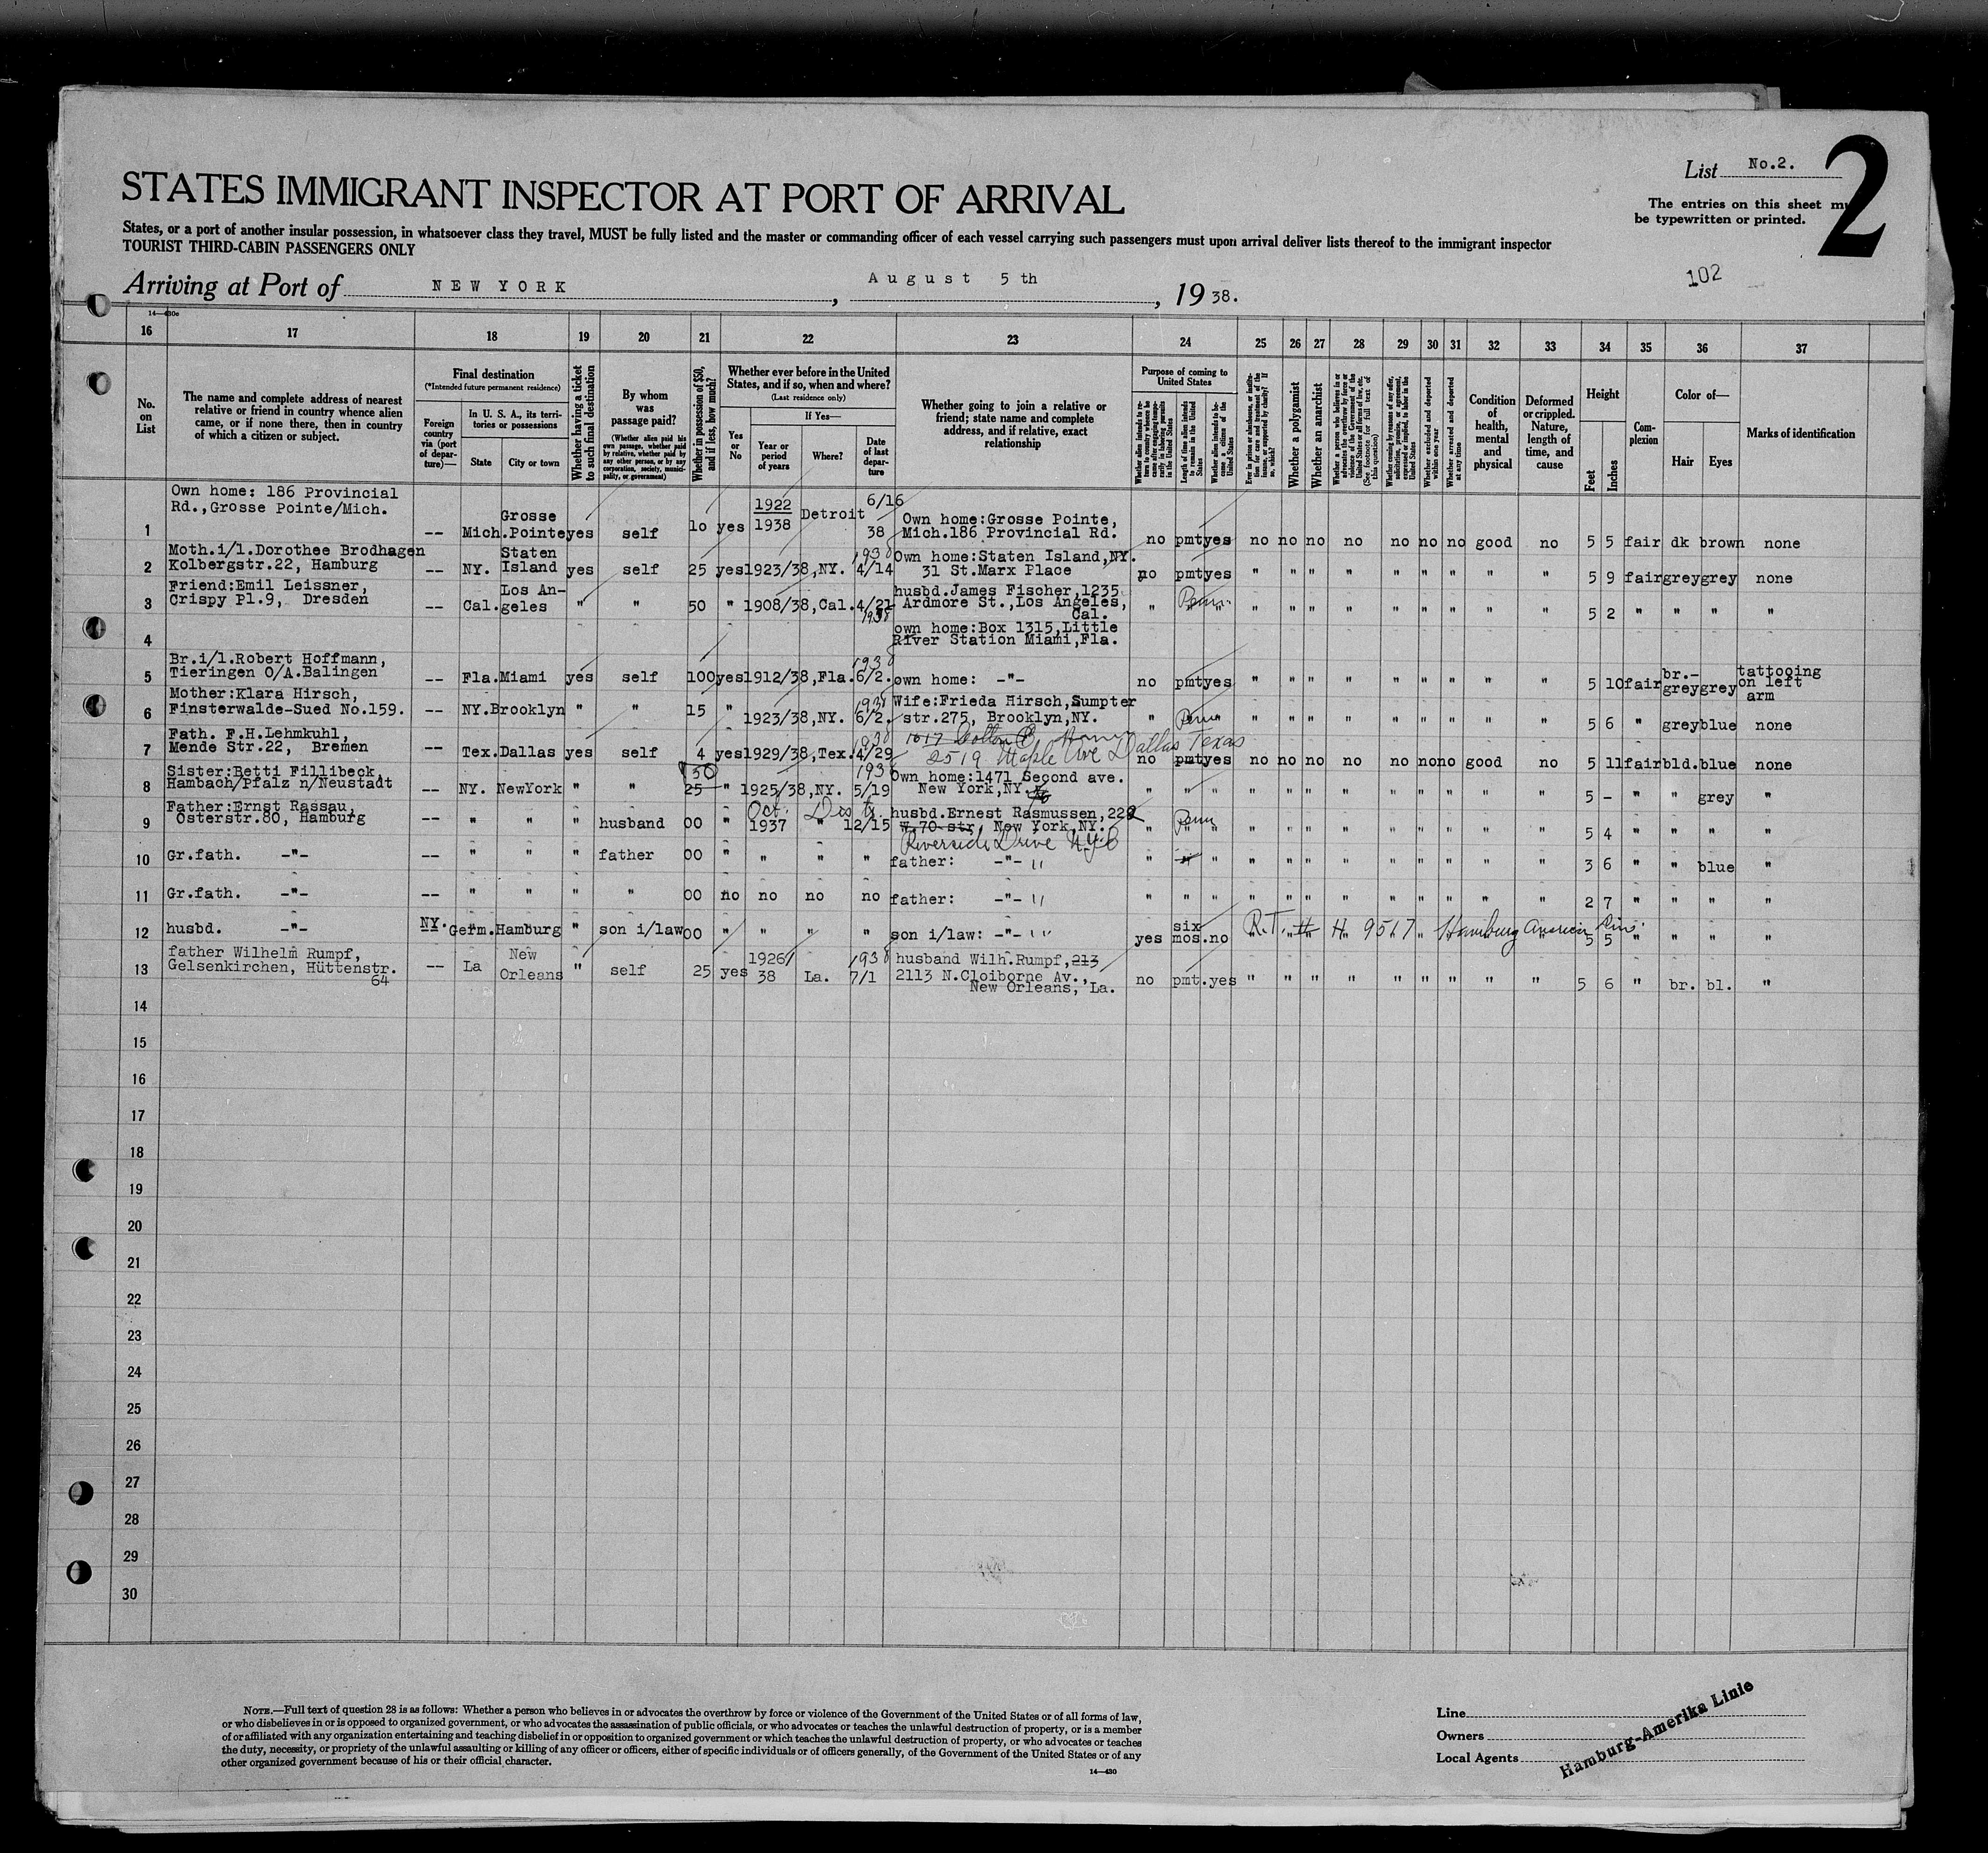 List No.2.
2
The entries on this sheet mu
be typewritten or printed.
STATES IMMIGRANT INSPECTOR AT PORT OF ARRIVAL
States, or a port of another insular possession, in whatsoever class they travel, MUST be fully listed and the master or commanding officer of each vessel carrying such passengers must upon arrival deliver lists thereof to the immigrant inspector
TOURIST THIRD-CABIN PASSENGERS ONLY
Arriving at Port of NEW YORK, August 5th, 1938.
102
14—430c
16 17 18 19 20 21 22 23 24 25 26 27 28 29 30 31 32 33 34 35 36 37
No. on List
The name and complete address of nearest relative or friend in country whence alien came, or if none there, then in country of which a citizen or subject.
Final destination
(*Intended future permanent residence)
Foreign country via (port of departure)—
In U. S. A., its territories or possessions
State
City or town
Whether having a ticket to such final destination
By whom was passage paid?
(Whether alien paid his own passage, whether paid by relative, whether paid by any other person, or by any corporation, society, municipality, or government)
Whether in possession of $50, and if less, how much?
Whether ever before in the United States, and if so, when and where?
(Last residence only)
Yes or No
If Yes—
Year or period of years
Where?
Date of last departure
Whether going to join a relative or friend; state name and complete address, and if relative, exact relationship
Purpose of coming to United States
Length of time alien intends to remain in the United States
Whether alien intends to become a citizen of the United States
Whether a polygamist
Whether an anarchist
Whether excluded and deported within one year
Whether arrested and deported at any time
Condition of health, mental and physical
Deformed or crippled. Nature, length of time, and cause
Height
Feet
Inches
Complexion
Color of—
Hair
Eyes
Marks of identification
Own home: 186 Provincial
Rd.,Grosse Pointe/Mich.
1 -- Mich. Grosse Pointe yes self 10 yes 1922 1938 Detroit 6/16 38 Own home:Grosse Pointe, Mich.186 Provincial Rd. no pmt yes no no no no no no no good no 5 5 fair dk brown none
Moth.i/l.Dorothee Brodhagen
2 Kolbergstr.22, Hamburg -- NY. Staten Island yes self 25 yes 1923/38,NY. 1938 4/14 Own home:Staten Island,NY. 31 St.Marx Place no pmt yes " " " " " " " " " 5 9 fair grey grey none
Friend:Emil Leissner,
3 Crispy Pl.9, Dresden -- Cal. Los Angeles " " 50 " 1908/38,Cal. 4/21 1938 husbd.James Fischer,1235 Ardmore St.,Los Angeles, Cal. " " " " " " " " " " " " 5 2 " " " "
4 own home:Box 1315,Little River Station Miami,Fla.
Br.i/l.Robert Hoffmann,
5 Tieringen O/A.Balingen -- Fla. Miami yes self 100 yes 1912/38,Fla. 1938 6/2. own home: -"- no pmt yes " " " " " " " " " 5 10 fair br.-grey grey tattooing on left arm
Mother:Klara Hirsch,
6 Finsterwalde-Sued No.159. -- NY. Brooklyn " " 15 " 1923/38,NY. 1938 6/2. Wife:Frieda Hirsch,Sumpter str.275, Brooklyn,NY. " " " " " " " " " " " 5 6 " grey blue none
Fath. F.H.Lehmkuhl,
7 Mende Str.22, Bremen -- Tex. Dallas yes self 4 yes 1929/38,Tex. 1938 4/29 2519 Maple Ave Dallas Texas no pmt yes no no no no no no no good no 5 11 fair bld. blue none
Sister:Betti Fillibeck,
8 Hambach/Pfalz n/Neustadt -- NY. NewYork " " 50 25 " 1925/38,NY. 1938 5/19 Own home:1471 Second ave. New York,NY. " " " " " " " " " " " " 5 - " " grey "
Father:Ernst Rassau,
9 Osterstr.80, Hamburg -- " " " husband 00 " Oct. 1937 " 12/15 husbd.Ernest Rasmussen,222 W.70 str, New York,NY. Riverside Drive N.Y.C " " " " " " " " " " " 5 4 " " " "
10 Gr.fath. -"- -- " " " father 00 " " " " father: -"- " " " " " " " " " " " " 3 6 " " blue "
11 Gr.fath. -"- -- " " " " 00 no no no no father: -"- " " " " " " " " " " " " 2 7 " " " "
12 husbd. -"- NY. Germ. Hamburg " son i/law 00 " " " " son i/law: -"- yes six mos. no R.T. # H 9517 Hamburg American Line 5 5 " " " "
father Wilhelm Rumpf,
13 Gelsenkirchen, Hüttenstr. 64 -- La New Orleans " self 25 yes 1926/38 La. 1938 7/1 husband Wilh.Rumpf,213 2113 N.Cloiborne Av., New Orleans, La. no pmt. yes " " " " " " " " " 5 6 " br. bl. "
14
15
16
17
18
19
20
21
22
23
24
25
26
27
28
29
30
NOTE.—Full text of question 28 is as follows: Whether a person who believes in or advocates the overthrow by force or violence of the Government of the United States or of all forms of law,
or who disbelieves in or is opposed to organized government, or who advocates the assassination of public officials, or who advocates or teaches the unlawful destruction of property, or is a member
of or affiliated with any organization entertaining and teaching disbelief in or opposition to organized government or which teaches the unlawful destruction of property, or who advocates or teaches
the duty, necessity, or propriety of the unlawful assaulting or killing of any officer or officers, either of specific individuals or of officers generally, of the Government of the United States or of any
other organized government because of his or their official character.
14—430
Line
Owners
Local Agents
Hamburg-Amerika Linie